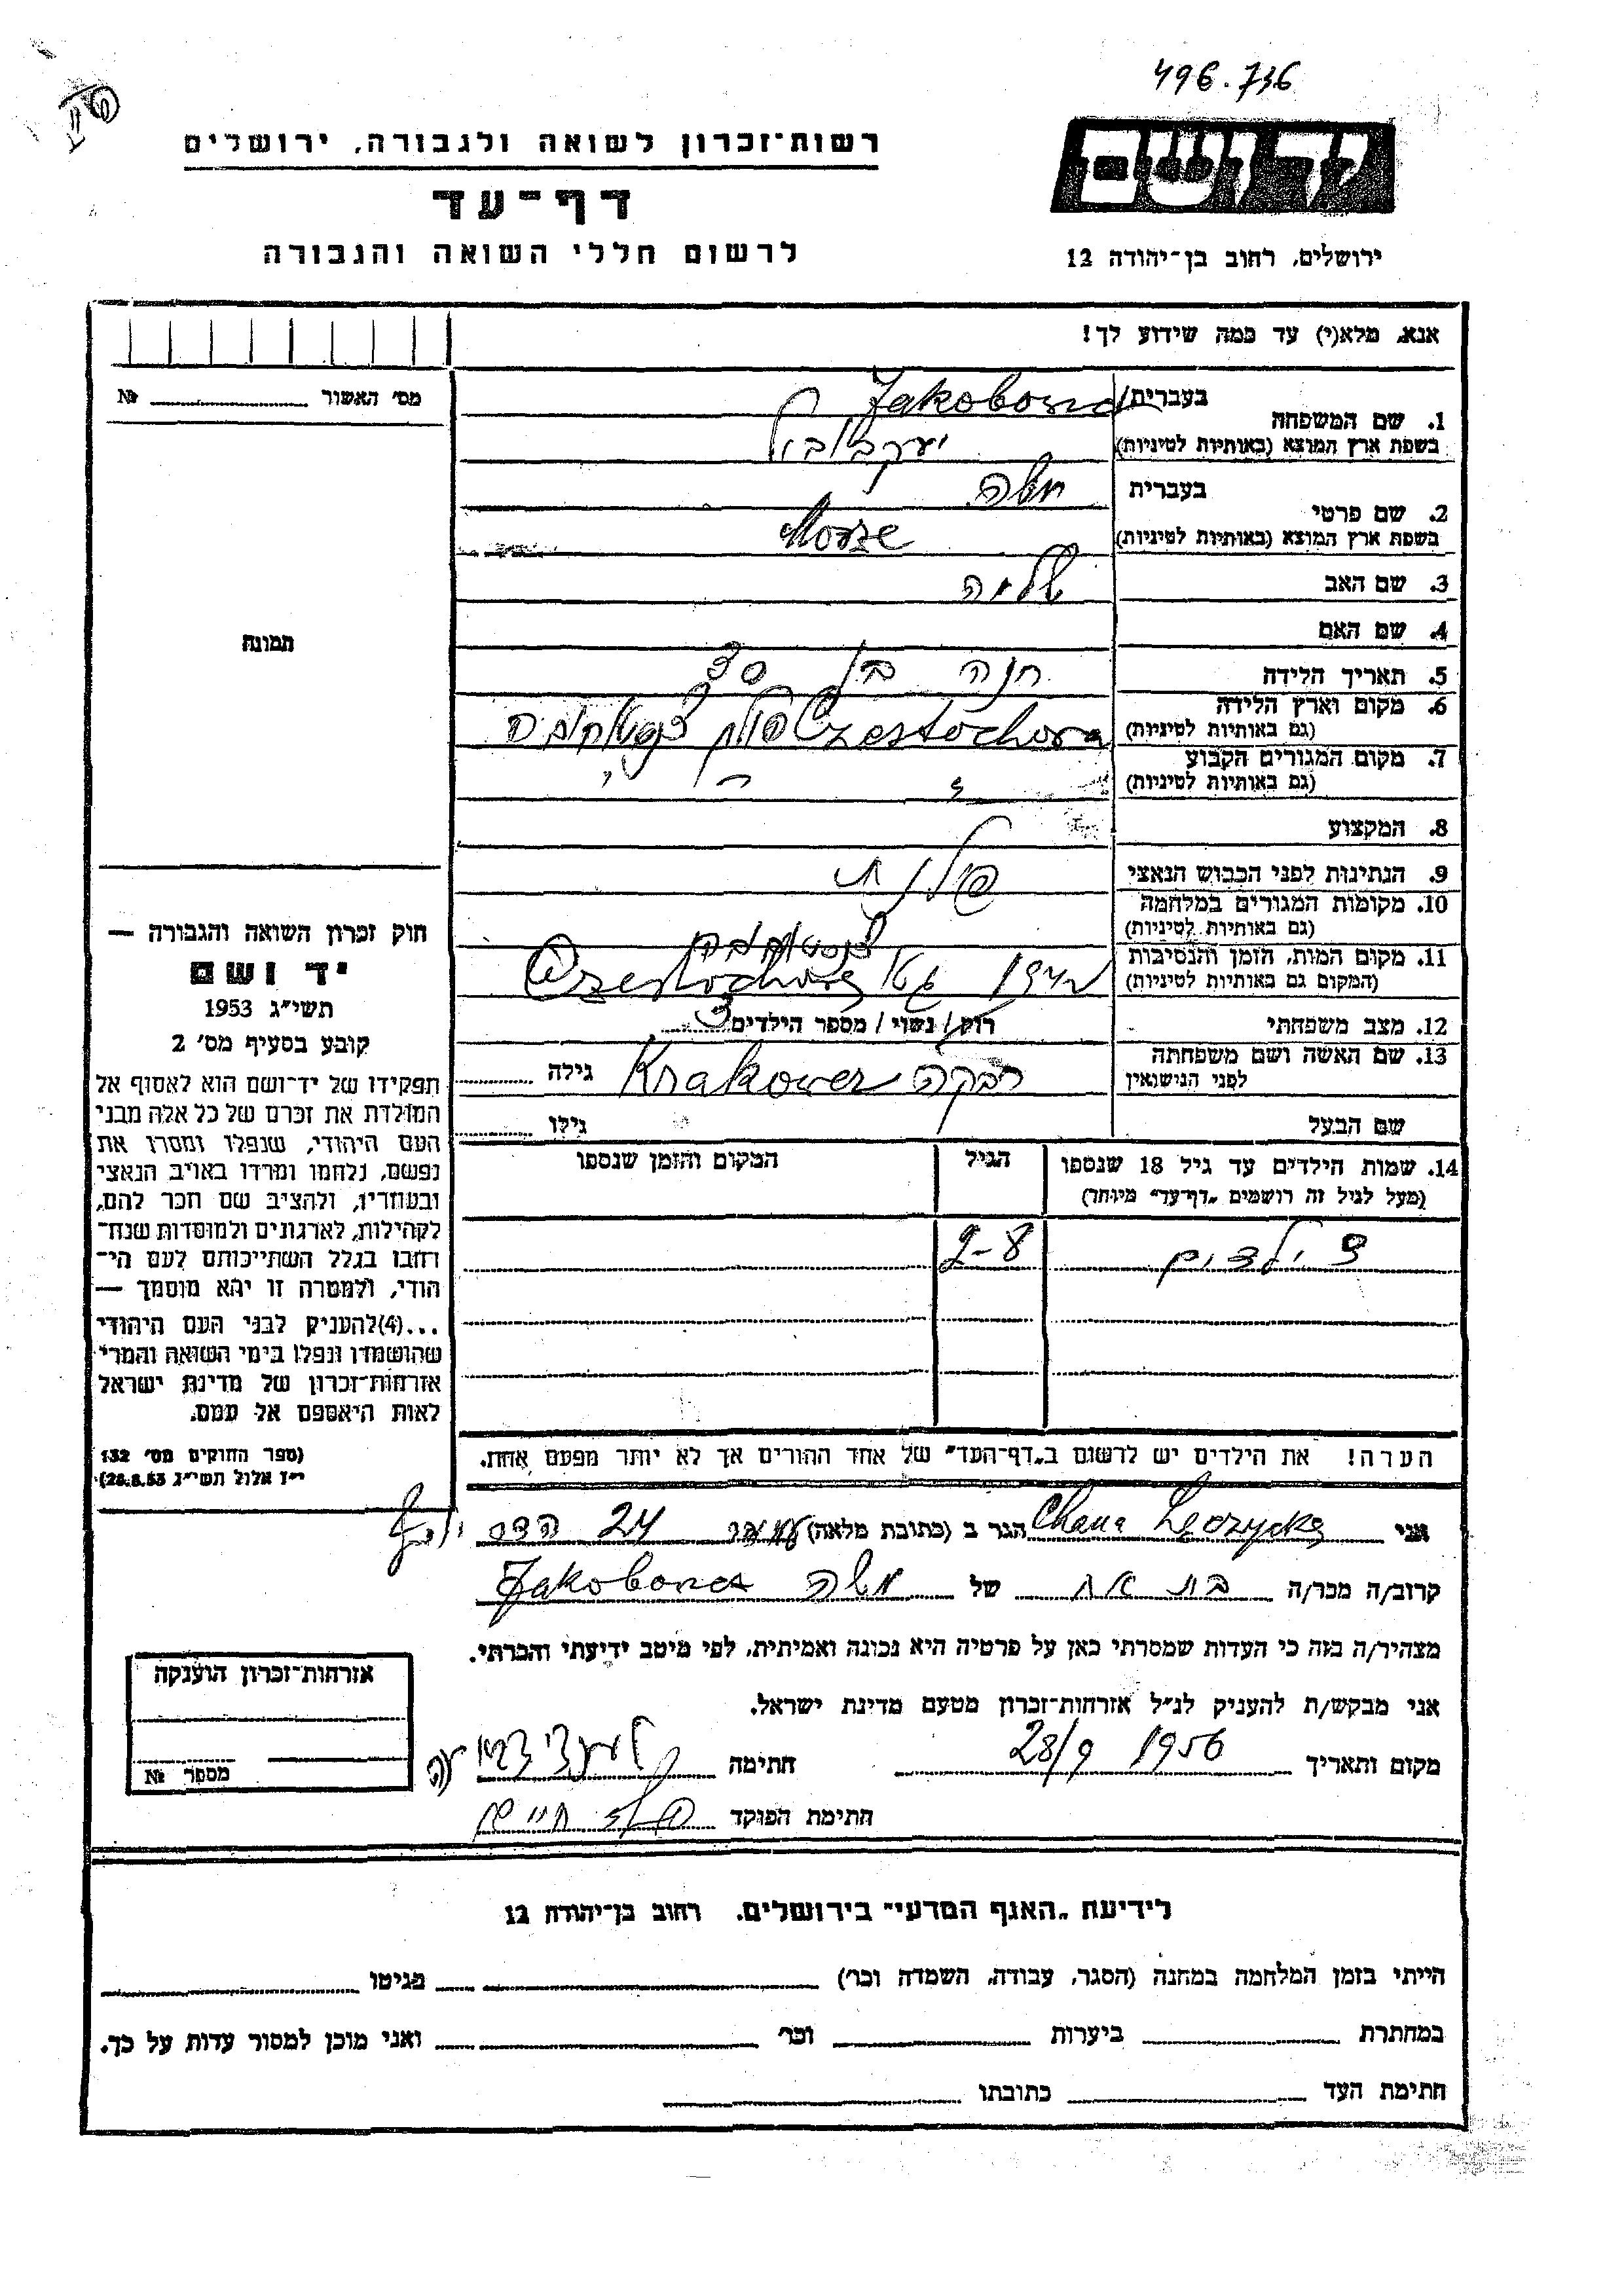 496.736
רשות־זכרון לשואה ולגבורה, ירושלים
דף־עד
לרשום חללי השואה והגבורה
ידושם
ירושלים, רחוב בן־יהודה 12
אנא, מלא(י) עד כמה שידוע לך!
מס׳ האשור № 
1. שם המשפחה בעברית
Jakobowicz
בשפת ארץ המוצא (באותיות לטיניות)
2. שם פרטי בעברית משה
בשפת ארץ המוצא (באותיות לטיניות)
3. שם האב שלמה
4. שם האם
תמונה
5. תאריך הלידה חנה בן 35
6. מקום וארץ הלידה
(גם באותיות לטיניות) Czestochova פולין צנסטוחובה
7. מקום המגורים הקבוע
(גם באותיות לטיניות)
8. המקצוע
9. הנתינות לפני הכבוש הנאצי פולנית
10. מקומות המגורים במלחמה
(גם באותיות לטיניות) צנסטוחובה
11. מקום המות, הזמן והנסיבות
(המקום גם באותיות לטיניות) 1942 גטו Czestochova
12. מצב משפחתי רוק / נשוי / מספר הילדים 3
13. שם האשה ושם משפחתה
לפני הנישואין רבקה Krakower גילה
שם הבעל גילו
14. שמות הילדים עד גיל 18 שנספו הגיל המקום והזמן שנספו
(מעל לגיל זה רושמים „דף־עד״ מיוחד)
3 ילדים 2-8
הערה! את הילדים יש לרשום ב„דף־העד״ של אחד ההורים אך לא יותר מפעם אחת.
חוק זכרון השואה והגבורה —
יד ושם
תשי״ג 1953
קובע בסעיף מס׳ 2
תפקידו של יד־ושם הוא לאסוף אל
המולדת את זכרם של כל אלה מבני
העם היהודי, שנפלו ומסרו את
נפשם, נלחמו ומרדו באויב הנאצי
ובעוזריו, ולהציב שם וזכר להם,
לקהילות, לארגונים ולמוסדות שנח־
רבו בגלל השתייכותם לעם הי־
הודי, ולמטרה זו יהא מוסמך —
...(4)להעניק לבני העם היהודי
שהושמדו ונפלו בימי השואה והמרי
אזרחות־זכרון של מדינת ישראל
לאות היאספם אל עמם.
(ספר החוקים מס׳ 132
י״ז אלול תשי״ג 28.8.53)
אני Chana Leczycka הגר ב (כתובת מלאה) 24
קרוב/ה מכר/ה בת אח של משה Jakobowicz
מצהיר/ה בזה כי העדות שמסרתי כאן על פרטיה היא נכונה ואמיתית, לפי מיטב ידיעתי והכרתי.
אני מבקש/ת להעניק לנ״ל אזרחות־זכרון מטעם מדינת ישראל.
מקום ותאריך 28/9 1956 חתימה
חתימת הפוקד
אזרחות־זכרון הוענקה
מספר №
לידיעת „האגף המדעי״ בירושלים, רחוב בן־יהודה 12
הייתי בזמן המלחמה במחנה (הסגר, עבודה, השמדה וכו׳) בגיטו
במחתרת ביערות וכו׳ ואני מוכן למסור עדות על כך.
חתימת העד כתובתו